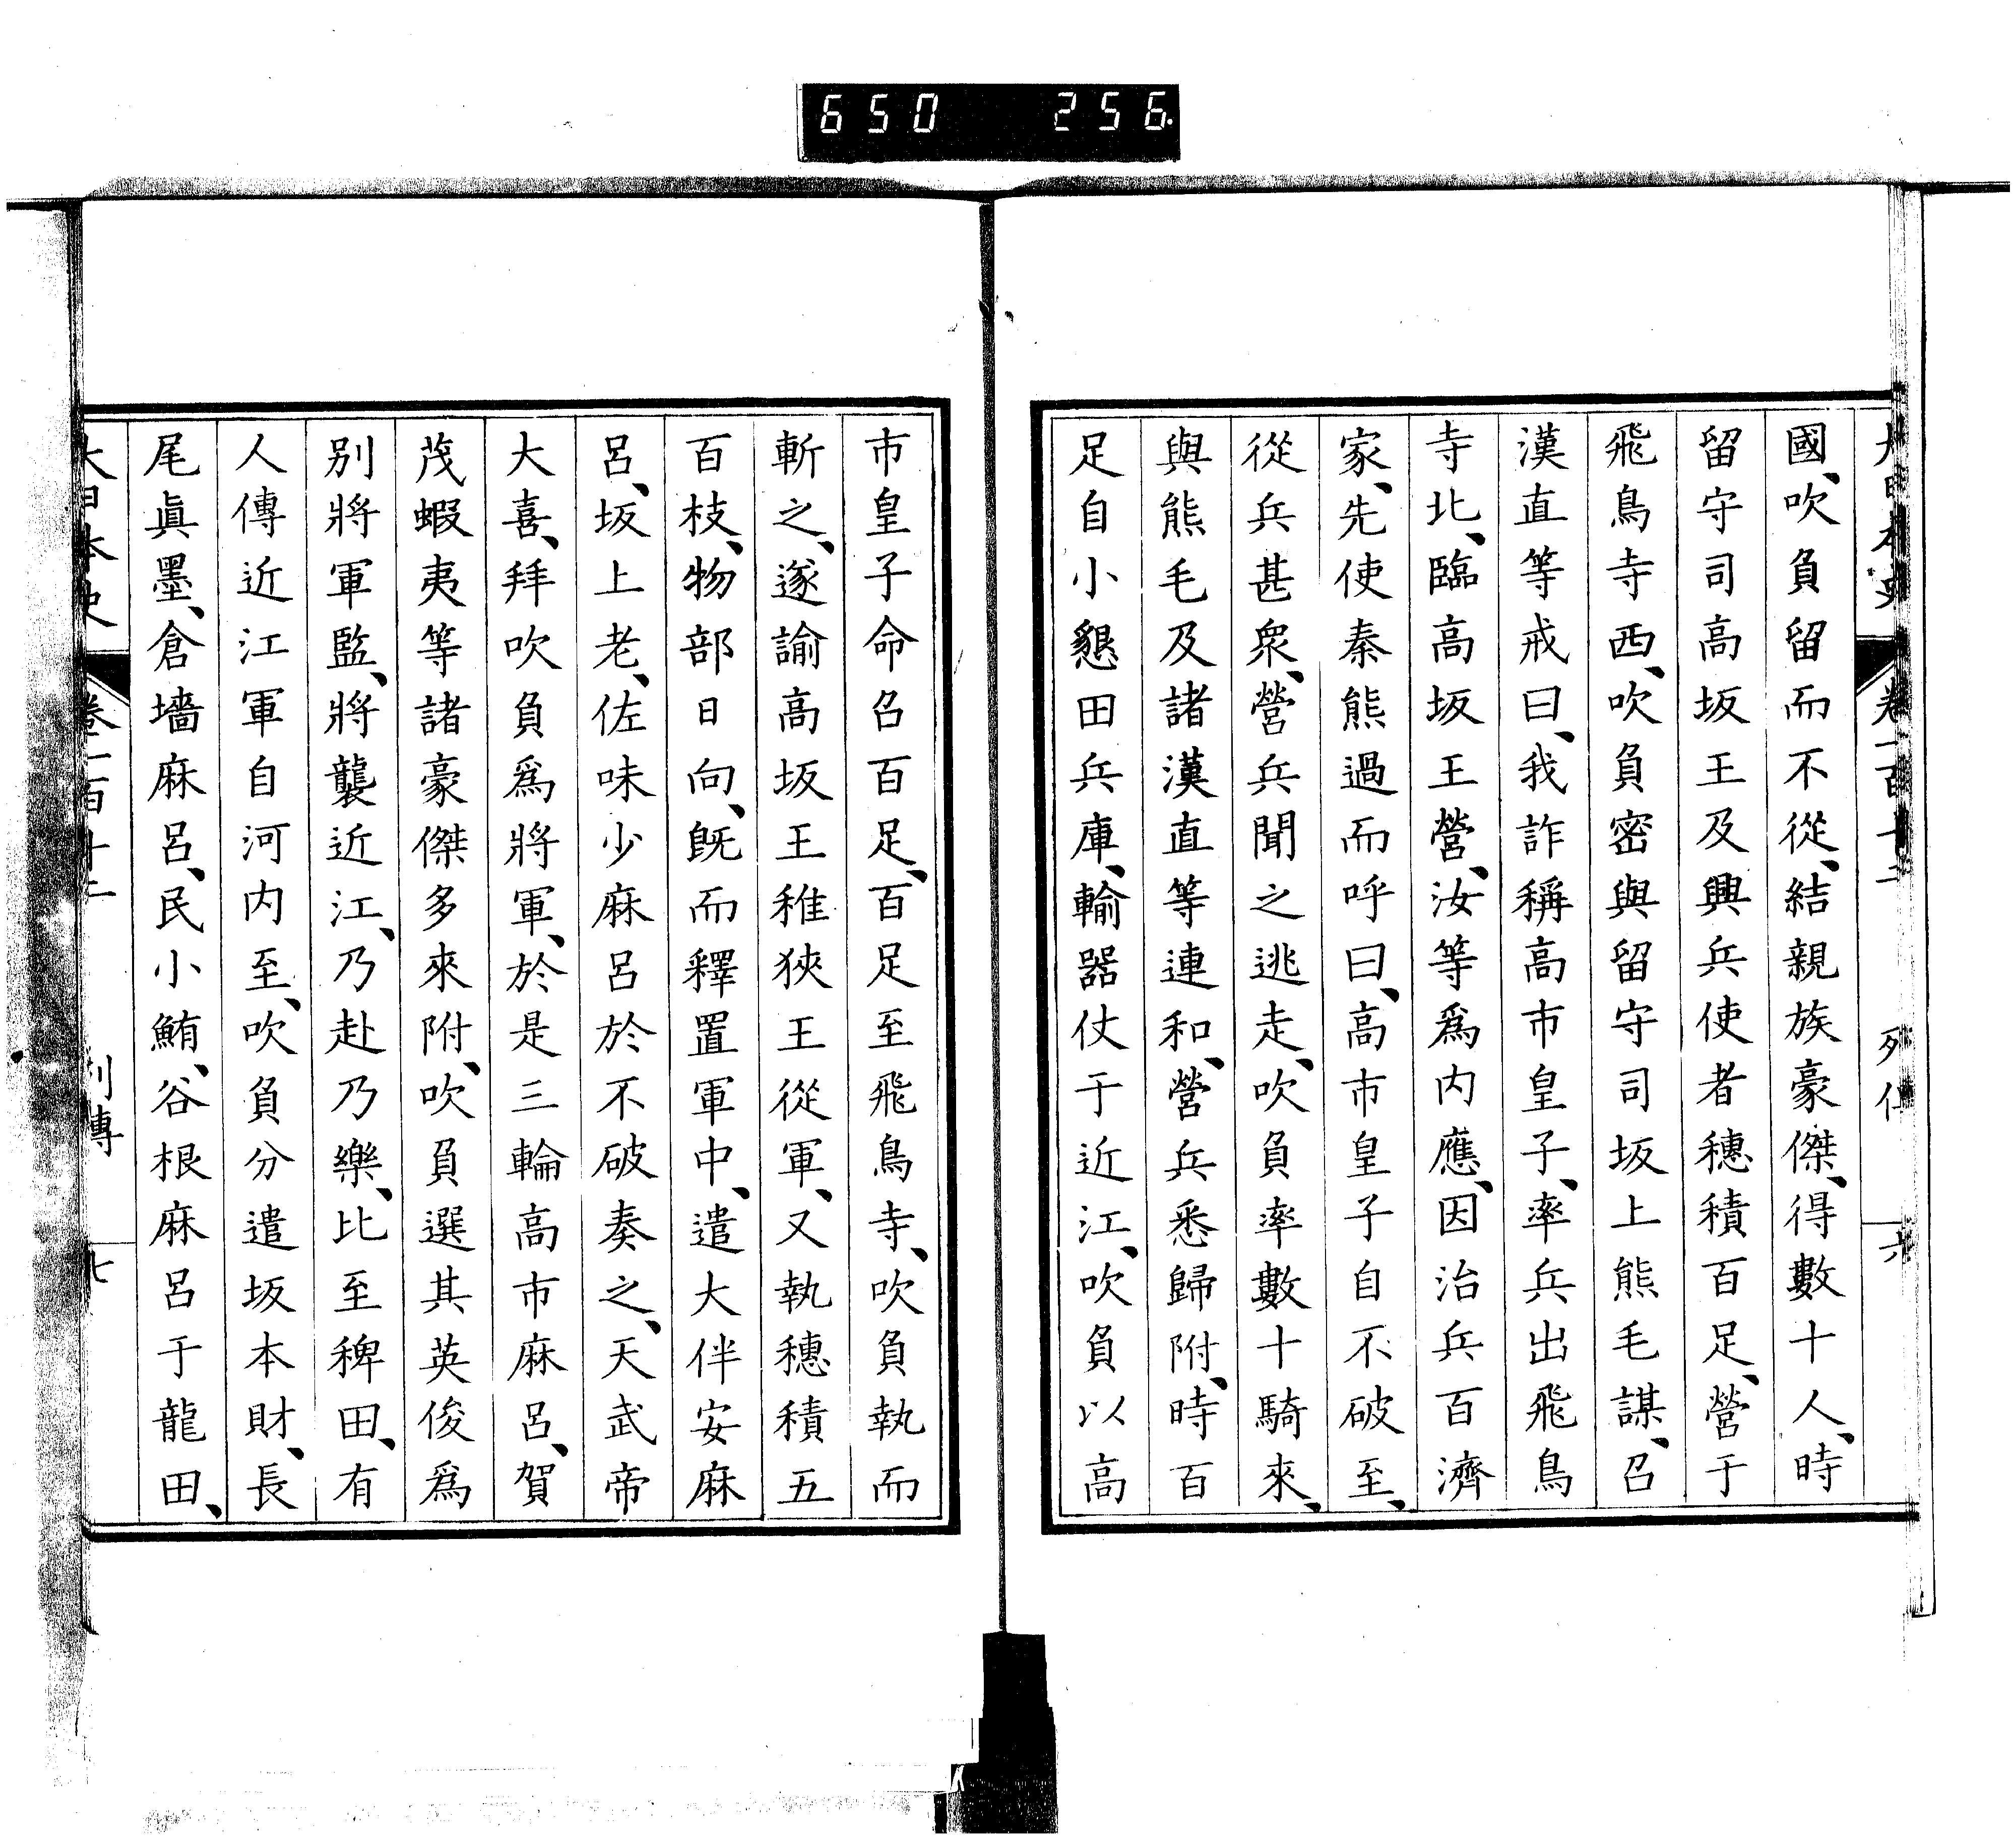 650 256
大日本史 卷一百十二 列傳 六
國、吹負留而不從、結親族豪傑、得數十人、時
留守司高坂王及興兵使者穗積百足、營于
飛鳥寺西、吹負密與留守司坂上熊毛謀、召
漢直等戒曰、我詐稱高市皇子、率兵出飛鳥
寺北、臨高坂王營、汝等爲内應、因治兵百濟
家、先使秦熊過而呼曰、高市皇子自不破至、
從兵甚衆、營兵聞之逃走、吹負率數十騎來、
與熊毛及諸漢直等連和、營兵悉歸附、時百
足自小懇田兵庫、輸器仗于近江、吹負以高
市皇子命召百足、百足至飛鳥寺、吹負執而
斬之、遂諭高坂王稚狹王從軍、又執穗積五
百枝、物部日向、旣而釋置軍中、遣大伴安麻
呂、坂上老、佐味少麻呂於不破奏之、天武帝
大喜、拜吹負爲將軍、於是三輪高市麻呂、賀
茂蝦夷等諸豪傑多來附、吹負選其英俊爲
別將軍監、將襲近江、乃赴乃樂、比至稗田、有
人傳近江軍自河内至、吹負分遣坂本財、長
尾眞墨、倉墻麻呂、民小鮪、谷根麻呂于龍田、
大日本史 卷一百十二 列傳 七